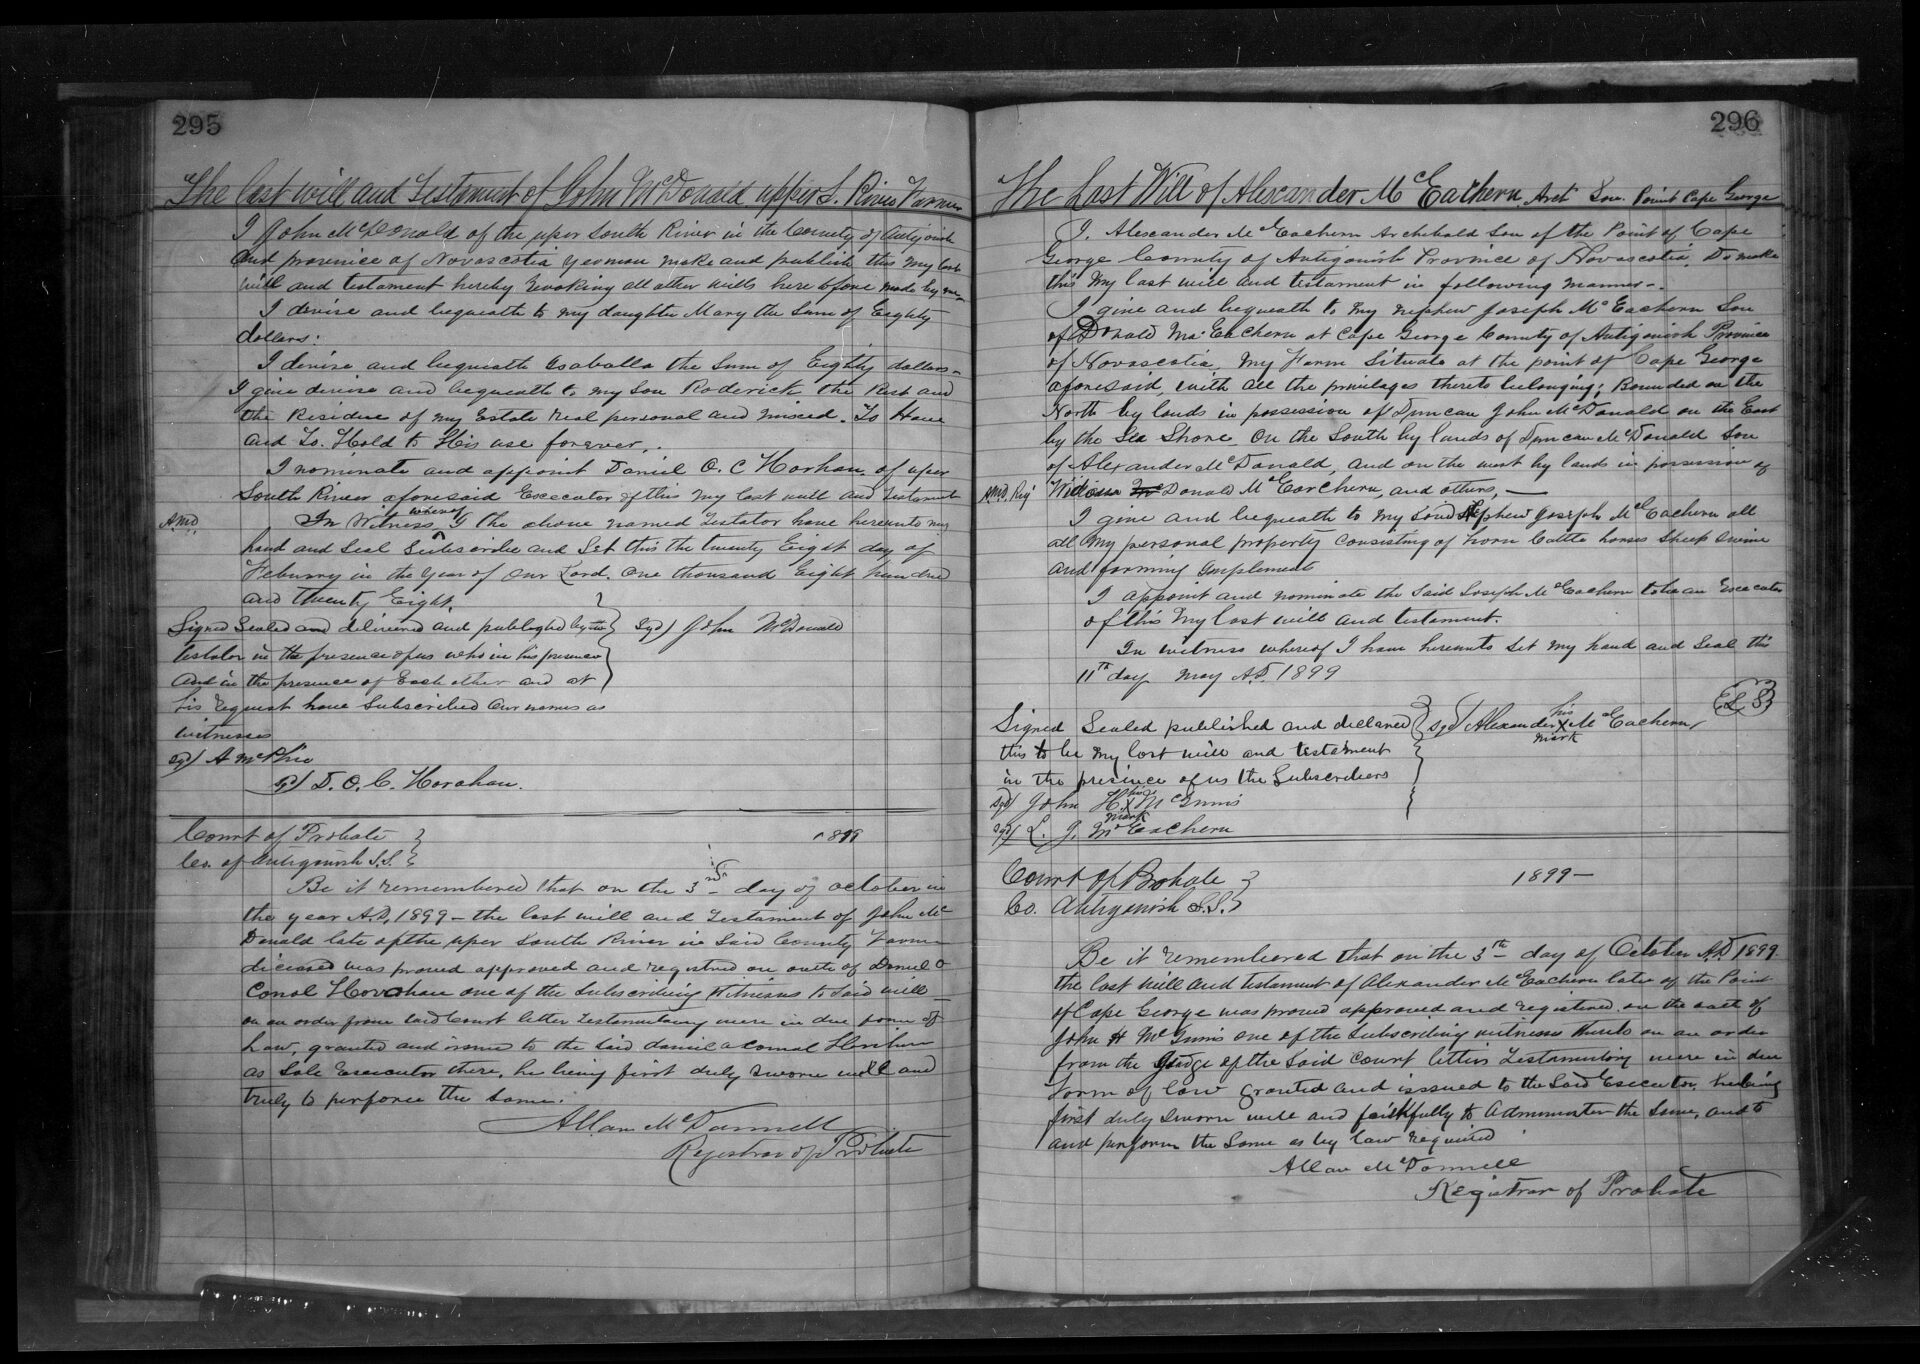 295
The Last will and Testament of John McDonald upper S. River Farmer
I John McDonald of the uper South River in the County of Antigonish
and province of Novascotia Yeoman make and publish this my last
will and testament hereby revoking all other wills here tofore made by me
I devise and bequeath to my daughter Mary the Sum of Eighty
dollars.
I devise and bequeath Isabella the Sum of Eighty dollars
I give devise and bequeath to my Son Roderick the Rest and
the Residue of my Estate real personal and mixed. To Have
and To. Hold to His use forever.
I nominate and appoint Daniel O. C Horhan of uper
South River aforesaid Executor of this my last will and Testament
AMD
In Witness whereof I the above named Testator have hereunto my
hand and Seal Subscribe and Set this the twenty Eight day of
Feburry in the year of our Lord. One thousand Eight hundred
and twenty Eight.
Signed Sealed and delivered and published by the Sgd) John McDonald
testator in the presence of us who in his presence
and in the presence of Each other and at
his request have Subscribed our names as
witnesses
sgd) A McPhie
sgd) D. O. C. Horahan.
Court of Probate 1899
Co. of Antigonish S.S.
Be it remembered that on the 3rd day of october in
the year A.D. 1899 - the last will and Testament of John Mc
Donald late of the uper South River in Said County Farmer
diceased was proved approved and registred on oath of Daniel O
Conol Horohan one of the Subscribing Witnesses to Said will
on an order from said Court letter Testamentary were in due form of
Law, granted and issued to the Said daniel oConnal Horohan
as Sole Executor there, he being first duly sworn well and
truly to perforce the Same.
Allan McDonnell
Registrar of Probate
296
The Last Will of Alexander McEachern Arch Son Point Cape George
I. Alexander McEachern Archibald Son of the Point of Cape
George County of Antigonish Province of Novascotia. Do make
this My last will and testament in following manner.
I give and bequeath to My nephew Joseph McEachern Son
of Donald McEachern at Cape George County of Antigonish Province
of Novascotia My Farm Situate at the point of Cape George
aforesaid, with all the privilages thereto belonging; Bounded on the
North by lands in possession of Duncan John McDonald on the East
by the Sea Shore On the South by lands of Duncan McDonald Son
of Alexander McDonald, and on the west by lands in possession of
AMD, Reg Widow Donald McEarchern, and others,
I give and bequeath to My Said Nephew Joseph McEachern all
all My personal property Consisting of horn Cattle horses Sheep Swine
and farming implements
I appoint and nominate the Said Joseph McEachern to be an Executor
of this My last will and testament.
In witness whereof I have hereunto Set My hand and Seal this
11th day May A.D. 1899
Signed Sealed published and declared sgd) Alexander his X mark McEachern L S
this to be My last will and testament
in the presince of us the Subscribers
sgd) John H. his X mark McGinnis
sgd) L. J. McEachern
Court of Probate 1899
Co. Antigonish S.S.
Be it remembered that on the 3th day of October A.D. 1899
the last will and testament of Alexander McEachern late of the Point
of Cape George was proved approved and registered on the oath of
John H McGinnis one of the Subscribing witness thereto on an order
from the Judge of the Said Court letters Testamentory were in due
form of law granted and isssued to the Said Executor he being
first duly sworn well and faithfully to Administer the Same, and to
and perform the Same as by law required
Allan McDonnell
Registrar of Probate